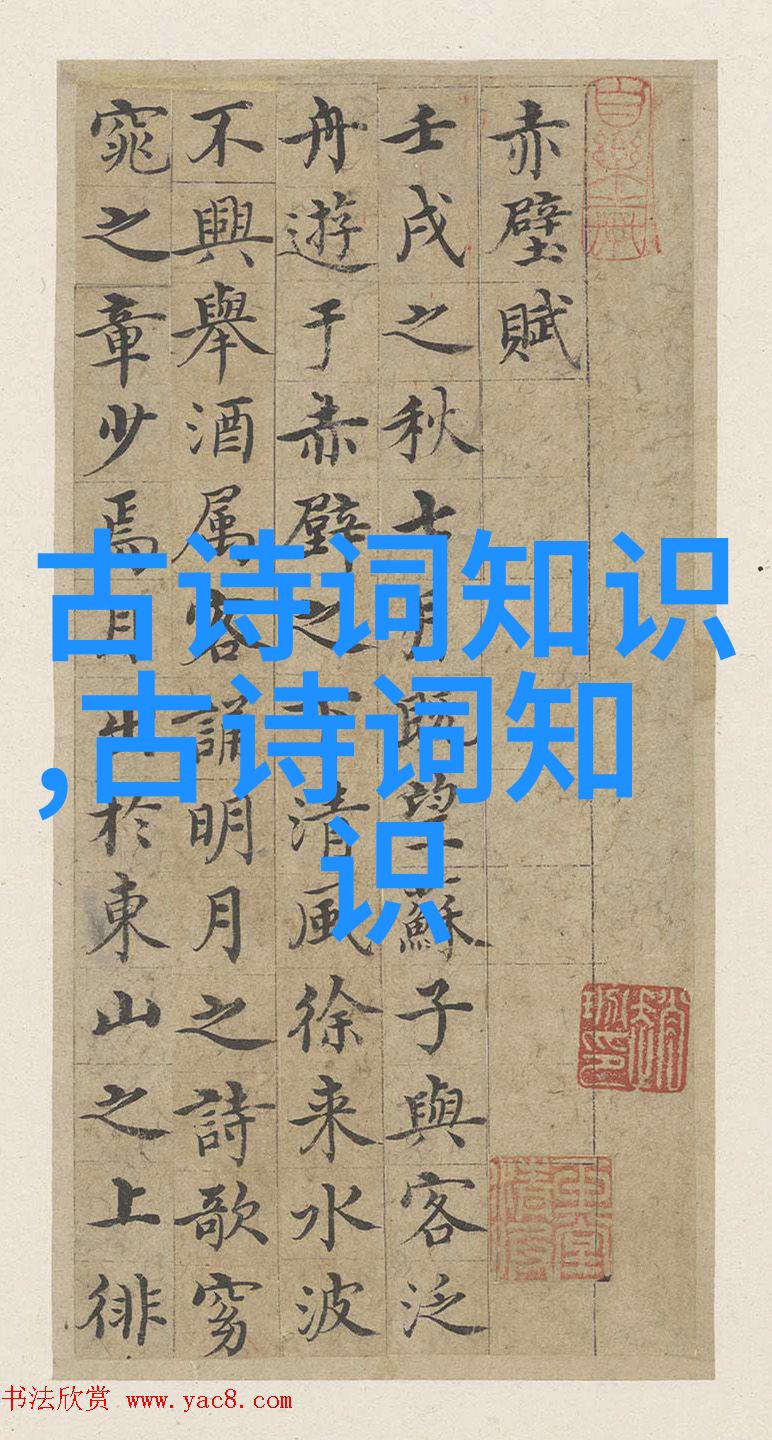 赤壁賦
壬戌之秋七月既望蘇子與客泛
舟遊于赤壁之下清風徐来水波
不興舉酒属客誦明月之詩歌窈
窕之章少焉月出於東山之上徘
古诗词知识
,古诗词知
识
书法欣赏 www.yac8.com